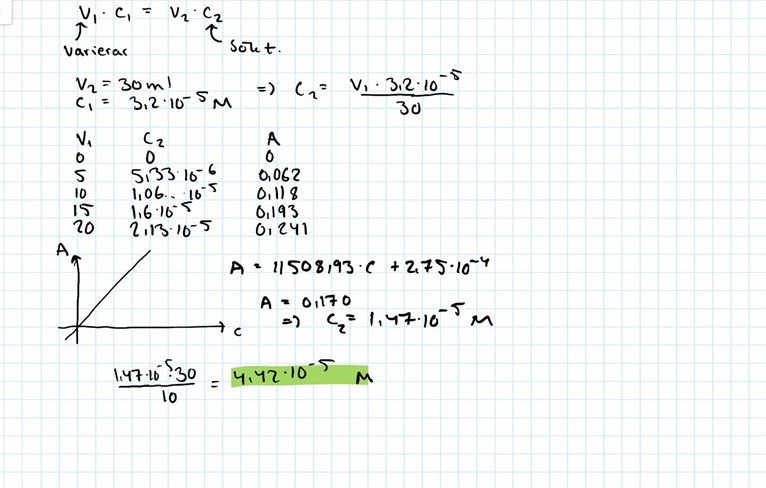 V₁ · C₁ = V₂ · C₂
Varierar
Sökt.
V₂ = 30ml
C₁ = 3,2·10⁻⁵ M
=> C₂ = V₁ · 3,2·10⁻⁵ / 30
V₁ C₂ A
0 0 0
5 5,33·10⁻⁶ 0,062
10 1,06..·10⁻⁵ 0,118
15 1,6·10⁻⁵ 0,193
20 2,13·10⁻⁵ 0,241
A
c
A = 11508,93·c + 2,75·10⁻⁴
A = 0,170
=> C₂ = 1,47·10⁻⁵ M
1,47·10⁻⁵·30 / 10 = 4,42·10⁻⁵ M